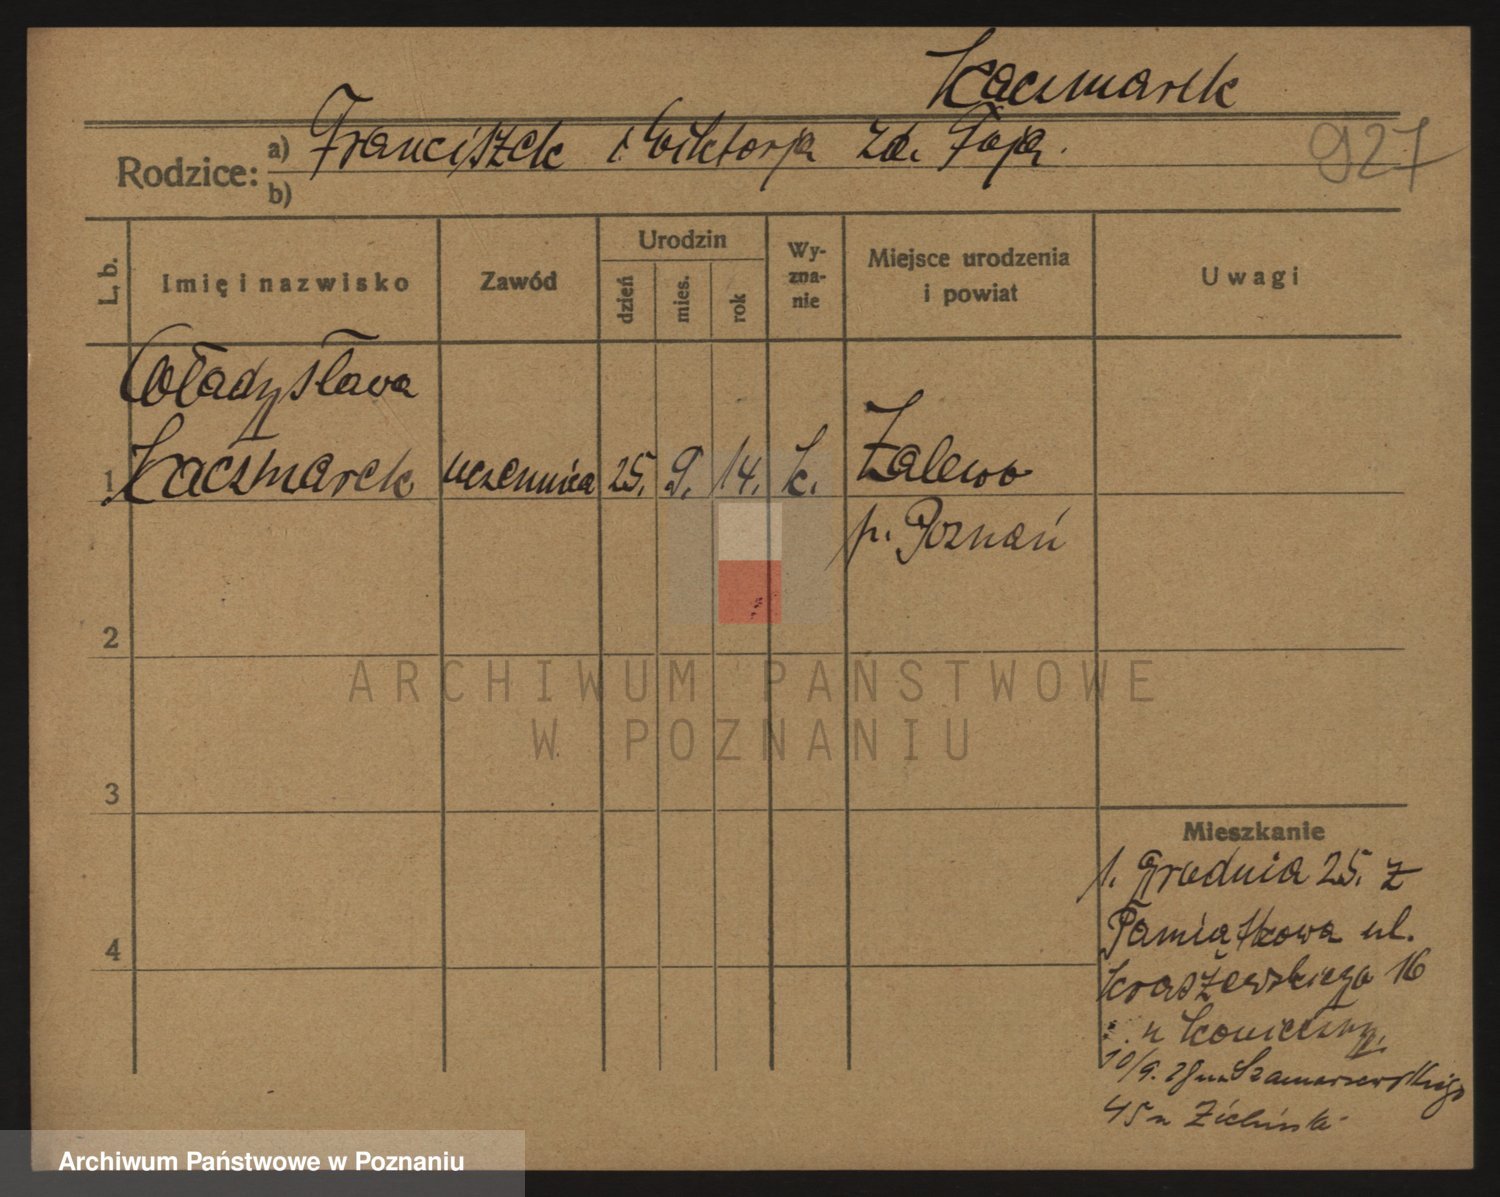 Kaczmarek
Rodzice: a) Franciszek i Wiktorja zd. Foja.
b)
927
L. b. Imię i nazwisko Zawód Urodzin dzień mies. rok Wyznanie Miejsce urodzenia i powiat Uwagi
Władysława
1 Kaczmarek uczennica 25. 9. 14. k. Zalewo
p. Poznań
2
ARCHIWUM PAŃSTWOWE
W POZNANIU
3
Mieszkanie
1. Grudnia 25. z
Pamiątkowa ul.
4
Kraszewskiego 16
u Konieczny.
10/9. 28 Szamarzewskiego
45 u
Archiwum Państwowe w Poznaniu